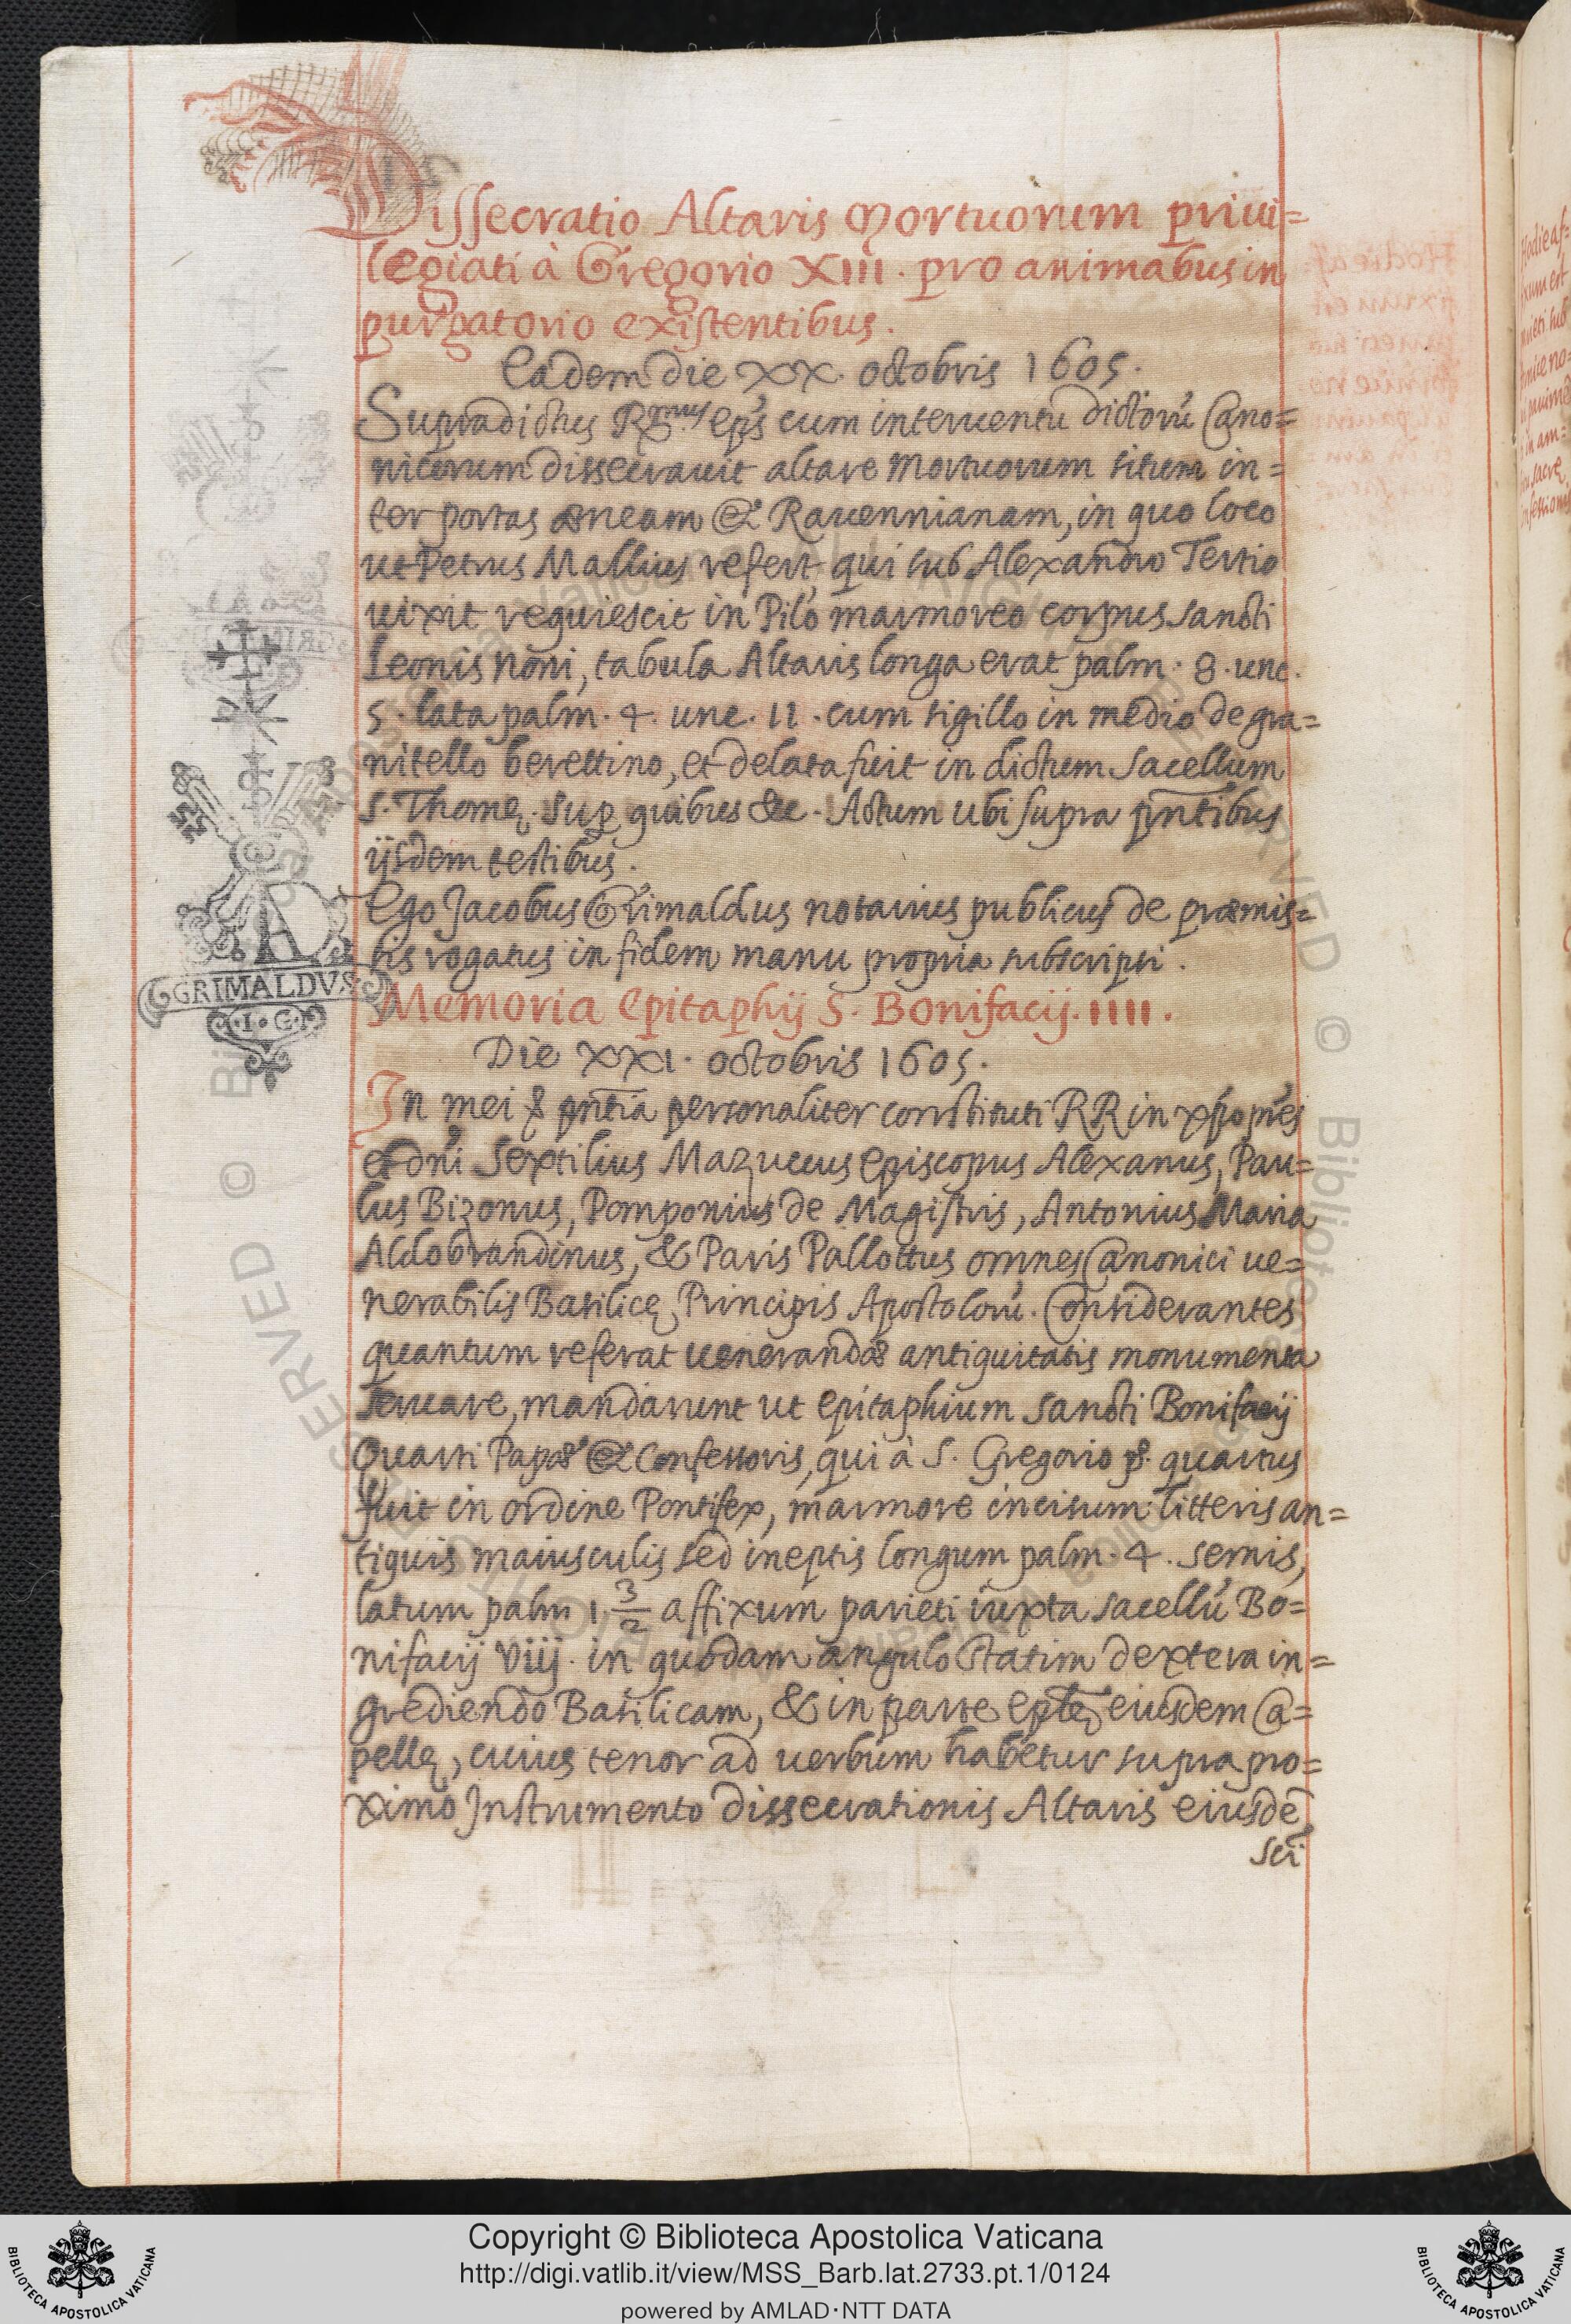 Dissecratio Altaris Mortuorum priui=
legiati à Gregorio XIII. pro animabus in
purgatorio existentibus.
Eadem die XX. octobris 1605.
Supradictus R.mus ep̃s cum interuentu dictorũ Cano=
nicorum dissecrauit altare Mortuorum situm in=
ter portas æneam & Rauennianam, in quo loco
ut Petrus Mallius refert, qui sub Alexandro Tertio
uixit requiescit in Pilo marmoreo corpus sancti
Leonis noni, tabula Altaris longa erat palm. 8. unc.
5. lata palm. 4. unc. 11. cum sigillo in medio de gra=
nitello berettino, et delata fuit in dictum sacellum
S. Thomę. Sup quibus &c. Actum ubi supra pñtibus
ijsdem testibus.
Ego Jacobus Grimaldus notarius publicus de præmis=
sis rogatus in fidem manu propria subscripsi.
GRIMALDVS
.I.G.
Memoria Epitaphij S. Bonifacij. IIII.
Die XXI. octobris 1605.
In mei & pñtia personaliter constituti RR in xp̃o pr̃es
et dñi Sextilius Mazuccus episcopus Alexanus, Pau=
lus Bizonus, Pomponius de Magistris, Antonius Maria
Aldobrandinus, & Paris Pallottus omnes Canonici ue=
nerabilis Basilicę Principis Apostolorũ. Considerantes
quantum referat uenerandæ antiquitatis monumenta
seruare, mandarunt ut epitaphium sancti Bonifacij
Quarti Papæ & Confessoris, qui à S. Gregorio p.º quartus
fuit in ordine Pontifex, marmore incisum litteris an=
tiquis maiusculis sed ineptis longum palm. 4. semis,
latum palm 1. 3/2 affixum parieti iuxta sacellũ Bo=
nifacij Viij. in quodam angulo statim dextera in=
grediendo Basilicam, & in parte ep̃lę eiusdem Ca=
pellę, cuius tenor ad uerbum habetur supra pro=
ximo Instrumento dissecrationis Altaris eiusdẽ
Sci
Copyright © Biblioteca Apostolica Vaticana
http://digi.vatlib.it/view/MSS_Barb.lat.2733.pt.1/0124
powered by AMLAD·NTT DATA
BIBLIOTECA APOSTOLICA VATICANA
BIBLIOTECA APOSTOLICA VATICANA